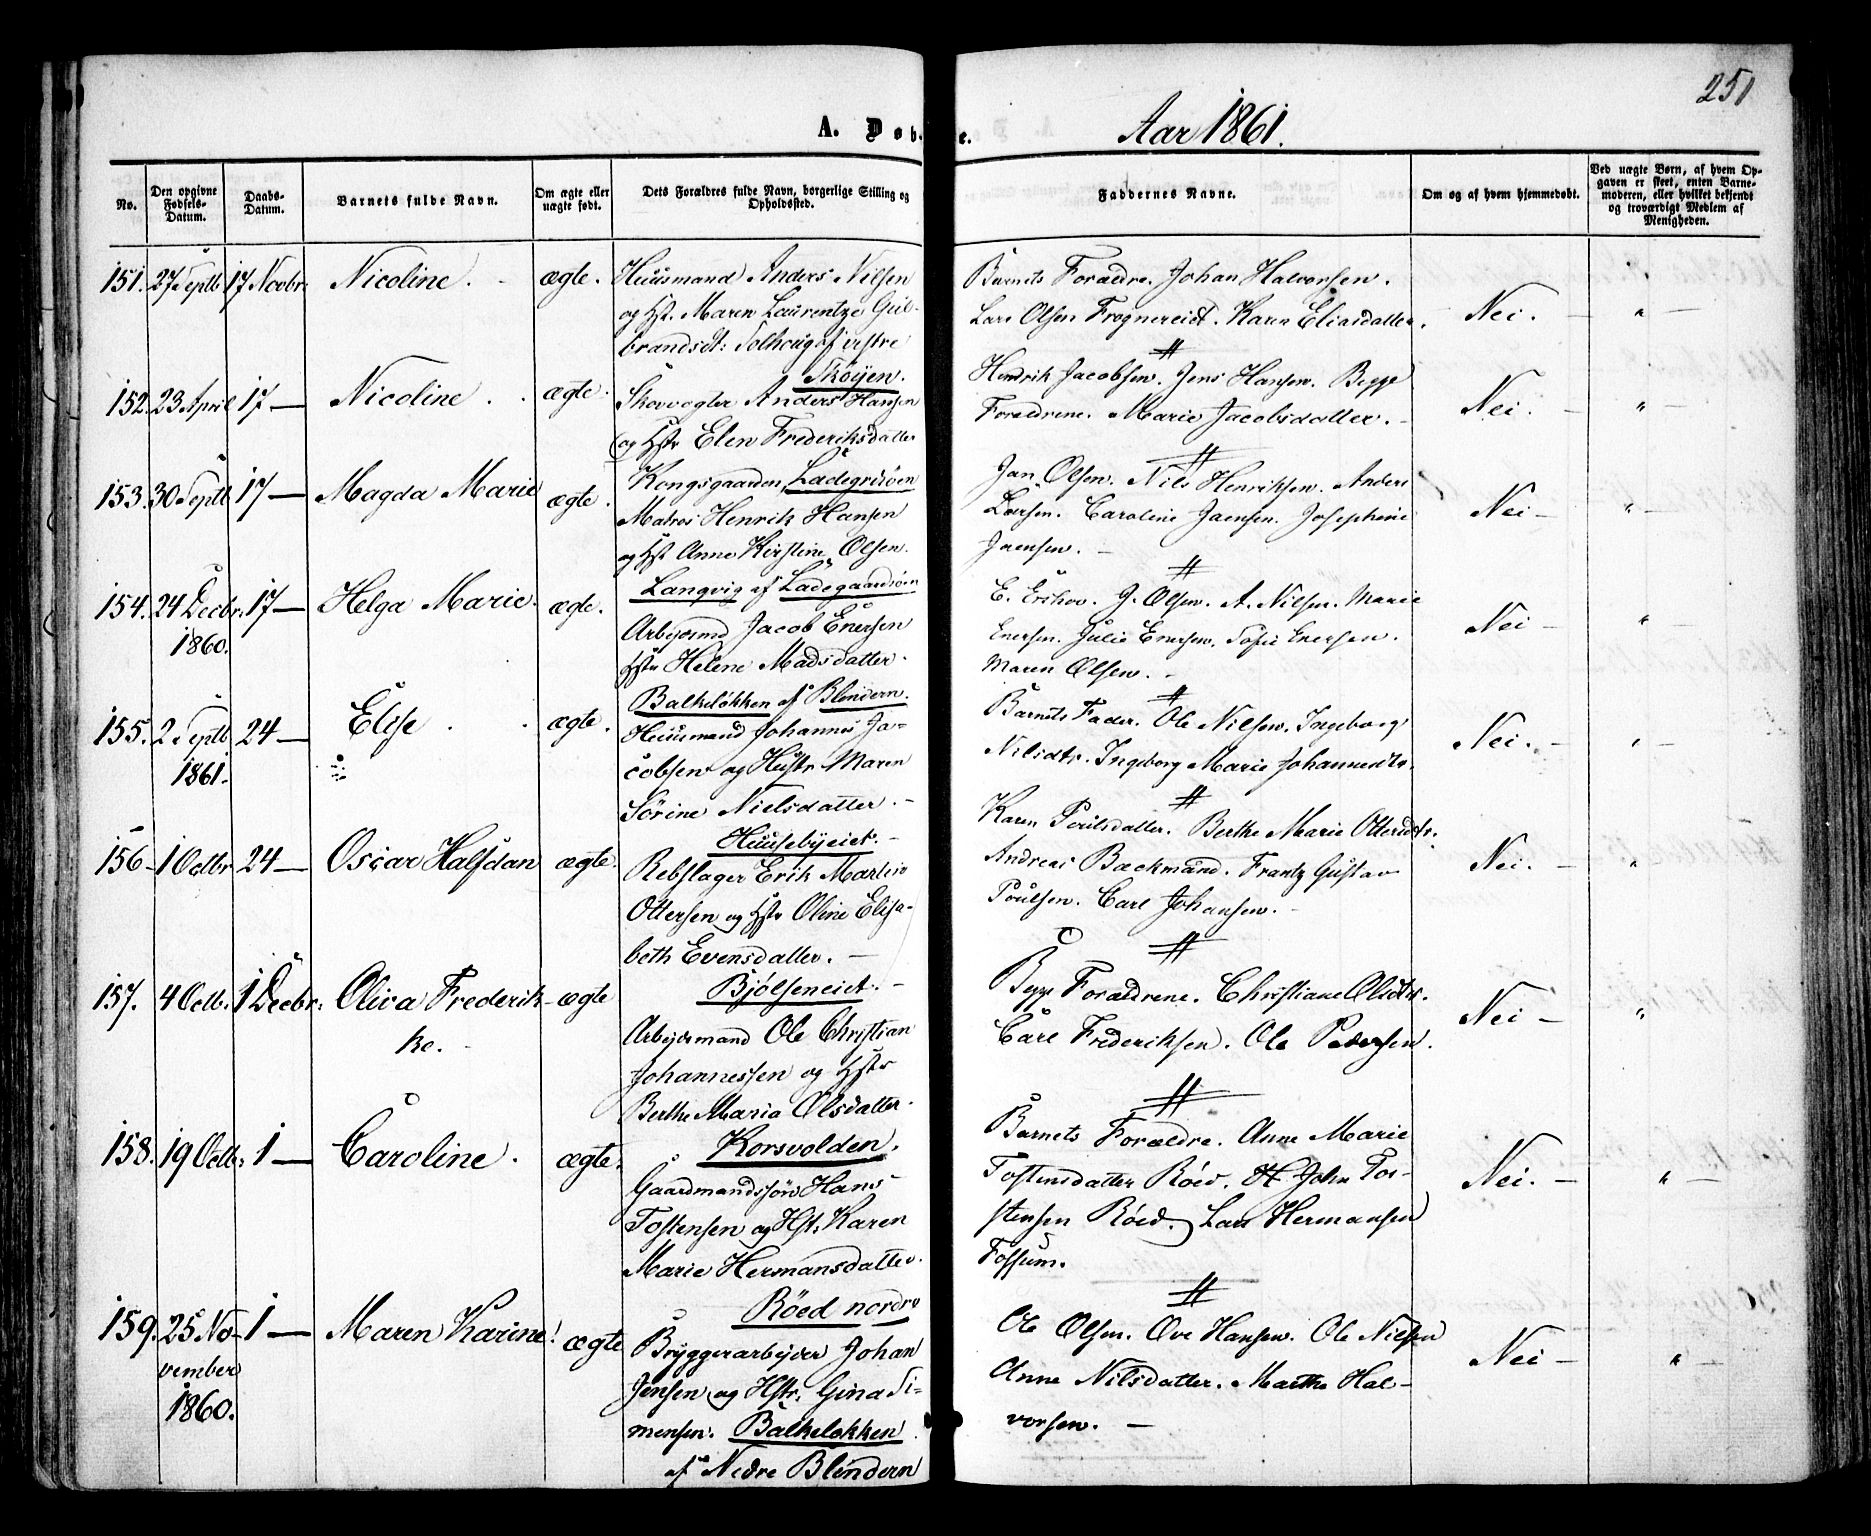 251
A. Døb- e. Aar 1861.
No.
Den opgivne Fødsels-Datum.
Daabs-Datum.
Barnets fulde Navn.
Om ægte eller uægte født.
Dets Forældres fulde Navn, borgerlige Stilling og Opholdssted.
Faddernes Navne.
Om og af hvem hjemmedøbt.
Ved uægte Børn, af hvem Opgaven er skeet, enten Barnemoderen, eller hvilket bekjendt og troværdigt Medlem af Menigheden.
151. 27 Septb 17 Novbr. Nicoline. ægte. Huusmand Anders Nilsen
og Hst. Maren Laurentze Gul-
brandsdt: Tolhaug af vestre
Skøijen.
Barnets Forældre. Johan Halvorsen.
Lars Olsen Frognereiet. Karen Eliasdatter.
Nei. — " —
152. 23 April 17 — Nicoline. ægte. Skovvogter Anders Hansen
og Hstr Elen Frederiksdatter
Kongsgaarden, Ladegrdsøen
Hendrik Jacobsen. Jens Hansen. Begge
Forældrene. Marie Jacobsdatter. —
Nei. — " —
153. 30 Septb 17 — Magda Marie ægte. Matros Henrik Hansen
og Hst Anne Kirstine Olsen.
Langvig af Ladegaardsøen
Jan Olsen. Nils Henriksen. Anders
Larsen. Caroline Jaensen. Josephine
Jaensen. —
Nei — " —
154. 24 Decbr. 17 — Helga Marie. ægte. Arbejdsmd Jacob Enersen
1860.
Hstr Helene Madsdatter.
Balkeløkken af Blindern.
E. Ershov. J. Olsen. A. Nilsen. Marie
Enersen. Julie Enersen. Sofie Enersen.
Maren Olsen. —
Nei — " —
155. 2 Septb 24 — Elise. ægte. Huusmand Johannes Ja-
1861.
cobsen og Hustr Maren
Sörine Nielsdatter. —
Huusebyeiet. —
Barnets Fader. Ole Nilsen. Ingeborg
Nilsdtr. Ingeborg Marie Johannesdtr.
Nei. — " —
156 — 1 Octbr 24 — Oscar Halfdan ægte. Rebslager Erik Martin
Ottersen og Hstr Oline Elisa-
beth Evensdatter. —
Bjølseneiet. —
Karen Poulsdatter. Berthe Marie Ottersdtr.
Andreas Backmand. Frantz Gustav
Poulsen. Carl Johansen. —
Nei. — "
157. 4 Octb. 1 Decbr. Oliva Frederik- ægte
ke. —
Arbejdsmand Ole Christian
Johannessen og Hstr
Berthe Maria Olsdatter.
Korsvolden.
Begge Forældrene. Christiane Olsdtr.
Carl Frederiksen. Ole Pedersen.
Nei — "
158. 19 Octb. 1 — Caroline. ægte. Gaardmandssön Hans
Tostensen og Hst. Karen
Marie Hermansdatter.
Röed nordre
Barnets Forældre. Anne Marie
Tostensdatter Röed. John Tos-
stensen Röed. Lars Hermansen
Fossum.
Nei. — " —
159. 25 No- 1 — Maren Karine. ægte Bryggerarbejder Johan
vember
1860.
Jensen og Hstr. Gina Si-
mensen. Balkeløkken
af Nedre Blindern
Ole Olsen. Ove Hansen. Ole Nilsen
Anne Nilsdatter. Marthe Hal-
vorsen. —
Nei — " —